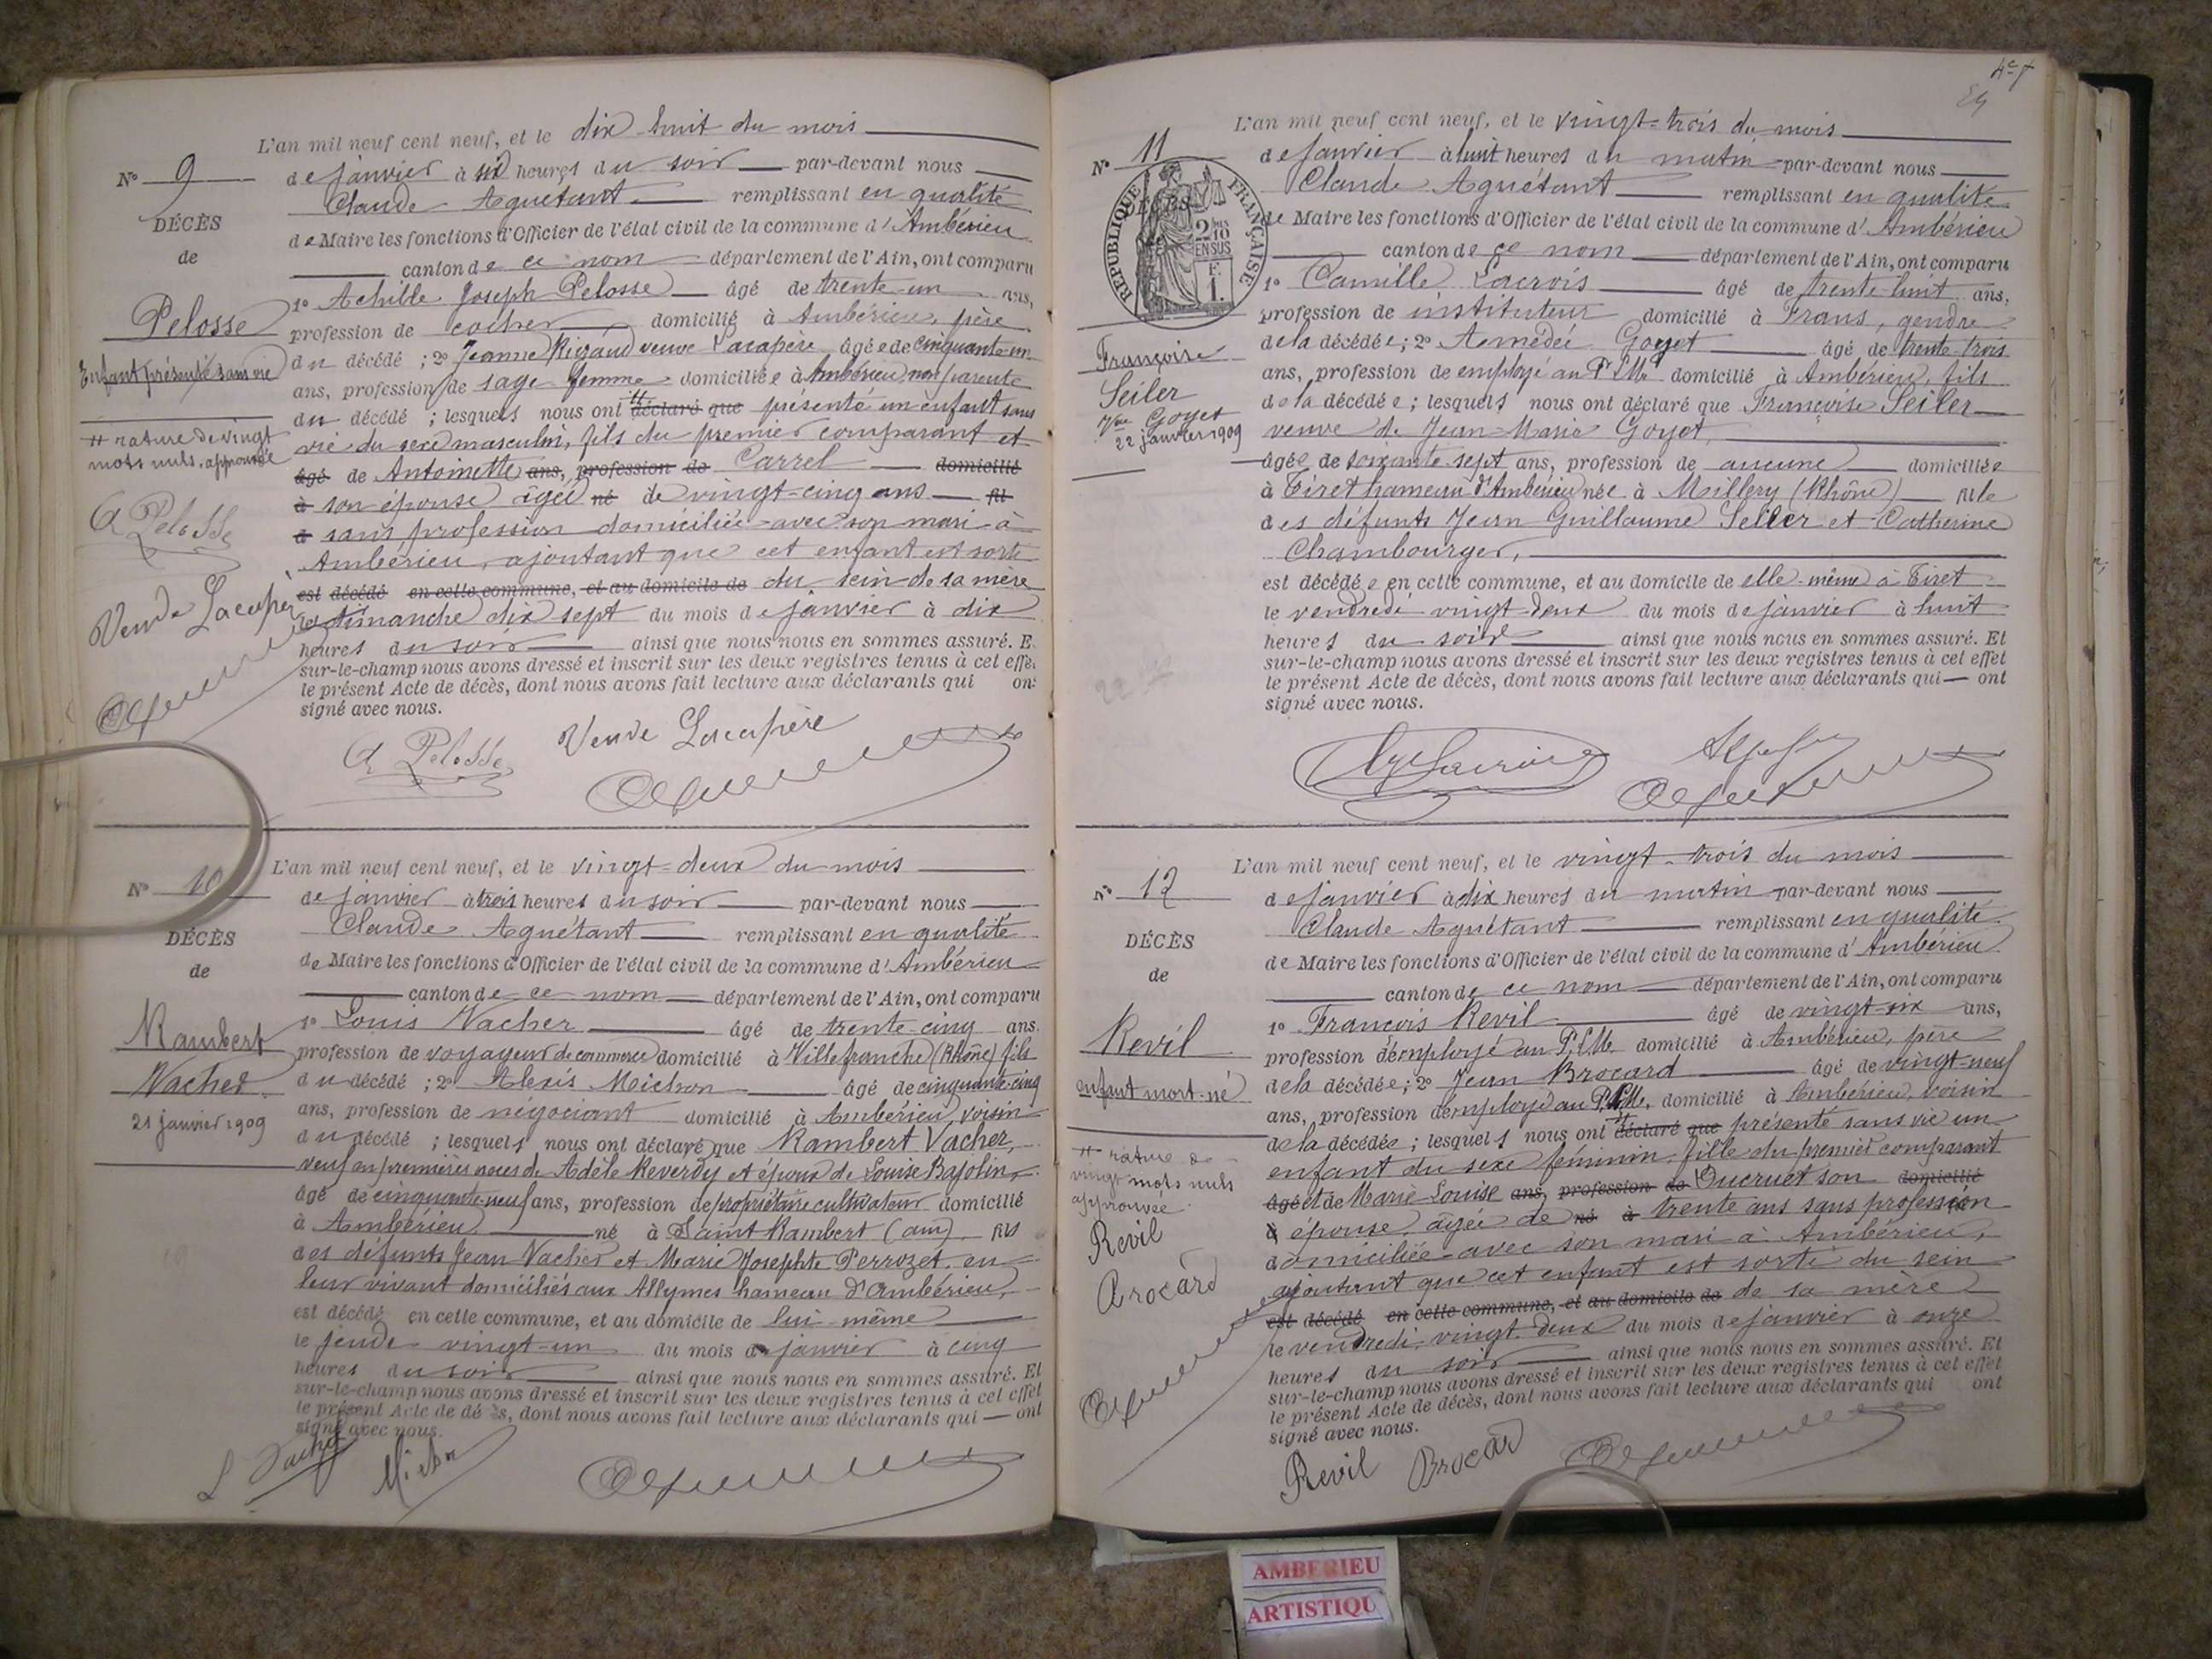 L'an mil neuf cent neuf, et le dix-huit du mois
N° 9
de janvier à six heures du soir par-devant nous
Claude Aguétant remplissant en qualité
DÉCÈS
de Maire les fonctions d'Officier de l'état civil de la commune d'Ambérieu
de
canton de ce nom département de l'Ain, ont comparu
1° Achille Joseph Pelosse âgé de trente-un ans,
Pelosse
profession de cocher domicilié à Ambérieu, père
Enfant présenté sans vie
du décédé ; 2° Jeanne Rigaud veuve Lacapère âgée de cinquante-un
ans, profession de sage-femme domiciliée à Ambérieu, non parente
du décédé ; lesquels nous ont déclaré que présenté un enfant sans
# rature de vingt
mots nuls, approuvée
vie du sexe masculin, fils du premier comparant et
âgé de Antoinette ans, profession de Carrel domicilié
à son épouse âgée né de vingt-cinq ans fil
A Pelosse
à sans profession domiciliée avec son mari à
Ambérieu, ajoutant que cet enfant est sorti
est décédé en cette commune, et au domicile de du sein de sa mère
Veuve Lacapère
le dimanche dix sept du mois de janvier à dix
heures du soir ainsi que nous nous en sommes assuré. E
sur-le-champ nous avons dressé et inscrit sur les deux registres tenus à cet effe
le présent Acte de décès, dont nous avons fait lecture aux déclarants qui on
signé avec nous.
A Pelosse Veuve Lacapère
L'an mil neuf cent neuf, et le vingt-deux du mois
N° 10
de janvier à trois heures du soir par-devant nous
Claude Aguétant remplissant en qualité
DÉCÈS
de Maire les fonctions d'Officier de l'état civil de la commune d'Ambérieu
de
canton de ce nom département de l'Ain, ont comparu
1° Louis Vacher âgé de trente-cinq ans.
Rambert
profession de voyageur de commerce domicilié à Villefranche (Rhône) fils
Vacher
du décédé ; 2° Alexis Michon âgé de cinquante-cinq
21 janvier 1909
ans, profession de négociant domicilié à Ambérieu, voisin
du décédé ; lesquels nous ont déclaré que Rambert Vacher,
veuf en premières noces de Adèle Reverdy et époux de Louise Bajolin,
âgé de cinquante-neuf ans, profession de propriétaire cultivateur domicilié
à Ambérieu né à Saint Rambert (ain) fils
des défunts Jean Vacher et Marie Josephte Perrozet en
leur vivant domiciliés aux Allymes hameau d'Ambérieu,
est décédé en cette commune, et au domicile de lui-même
le jeudi vingt-un du mois de janvier à cinq
heures du soir ainsi que nous nous en sommes assuré. Et
sur-le-champ nous avons dressé et inscrit sur les deux registres tenus à cet effet
le présent Acte de décès, dont nous avons fait lecture aux déclarants qui ont
signé avec nous.
L Vacher Michon
L'an mil neuf cent neuf, et le vingt-trois du mois
N° 11
de janvier à huit heures du matin par-devant nous
Claude Aguétant remplissant en qualité
RÉPUBLIQUE FRANÇAISE
2/10 EN SUS
F. 1.
de Maire les fonctions d'Officier de l'état civil de la commune d'Ambérieu
canton de ce nom département de l'Ain, ont comparu
1° Camille Lacroix âgé de trente-huit ans,
profession de instituteur domicilié à Frans, gendre
Françoise
Seiler
Vve Goyet
22 janvier 1909
de la décédée ; 2° Amédée Goyet âgé de trente-trois
ans, profession de employé au P.L.M. domicilié à Ambérieu, fils
de la décédée ; lesquels nous ont déclaré que Françoise Seiler
veuve de Jean-Marie Goyet,
âgée de soixante-sept ans, profession de aucune domiciliée
à Tiret hameau d'Ambérieu née à Millery (Rhône) fille
des défunts Jean Guillaume Seiler et Catherine
Chambourger,
est décédée en cette commune, et au domicile de elle-même à Tiret
le vendredi vingt-deux du mois de janvier à huit
heures du soir ainsi que nous nous en sommes assuré. Et
sur-le-champ nous avons dressé et inscrit sur les deux registres tenus à cet effet
le présent Acte de décès, dont nous avons fait lecture aux déclarants qui ont
signé avec nous.
L'an mil neuf cent neuf, et le vingt-trois du mois
N° 12
de janvier à dix heures du matin par-devant nous
Claude Aguétant remplissant en qualité
DÉCÈS
de Maire les fonctions d'Officier de l'état civil de la commune d'Ambérieu
de
canton de ce nom département de l'Ain, ont comparu
1° François Revil âgé de vingt-six ans,
Revil
profession d'employé au P.L.M. domicilié à Ambérieu, père
enfant mort-né
de la décédée ; 2° Jean Brocard âgé de vingt-neuf
ans, profession d'employé au P.L.M. domicilié à Ambérieu, voisin
de la décédée ; lesquels nous ont déclaré que présenté sans vie un
# rature de
vingt mots nuls
approuvée
enfant du sexe féminin, fille du premier comparant
âgé et de Marie-Louise ans, profession de Ducruet son domicilié
Revil
à épouse, âgée de né à trente ans sans profession
domiciliée avec son mari à Ambérieu,
Brocard
ajoutant que cet enfant est sorti du sein
est décédé en cette commune, et au domicile de de sa mère
le vendredi vingt-deux du mois de janvier à onze
heures du soir ainsi que nous nous en sommes assuré. Et
sur-le-champ nous avons dressé et inscrit sur les deux registres tenus à cet effet
le présent Acte de décès, dont nous avons fait lecture aux déclarants qui ont
signé avec nous.
Revil Brocard
AMBERIEU
ARTISTIQU